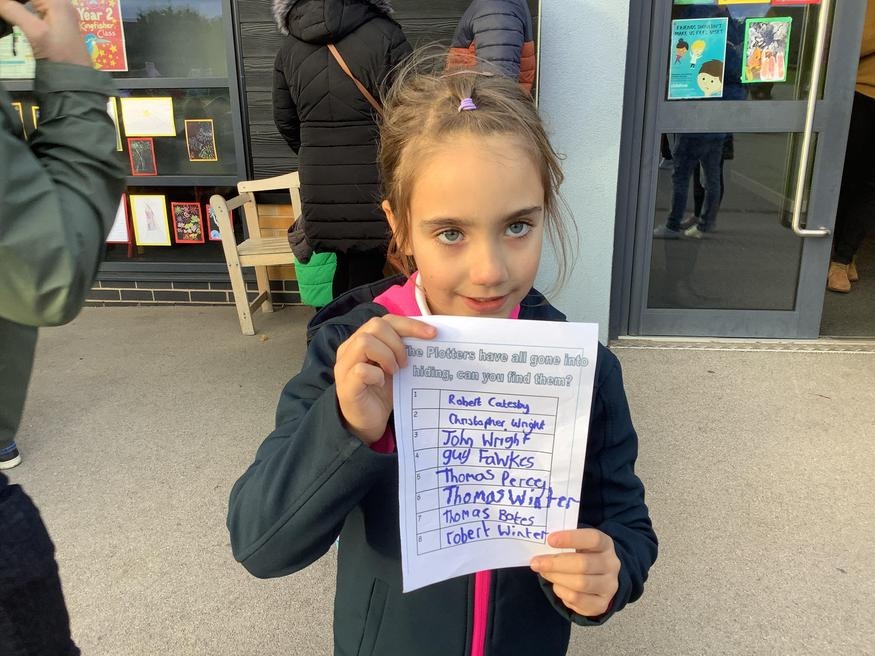 Year 2
Kingfisher
Class
FRIENDS SHOULDN'T
MAKE US FEEL
UNSAFE
The Plotters have all gone into
hiding, can you find them?
1 Robert Catesby
2 Christopher Wright
3 John Wright
4 guy Fawkes
5 Thomas Percey
6 Thomas Winter
7 Thomas Bates
8 robert Winter